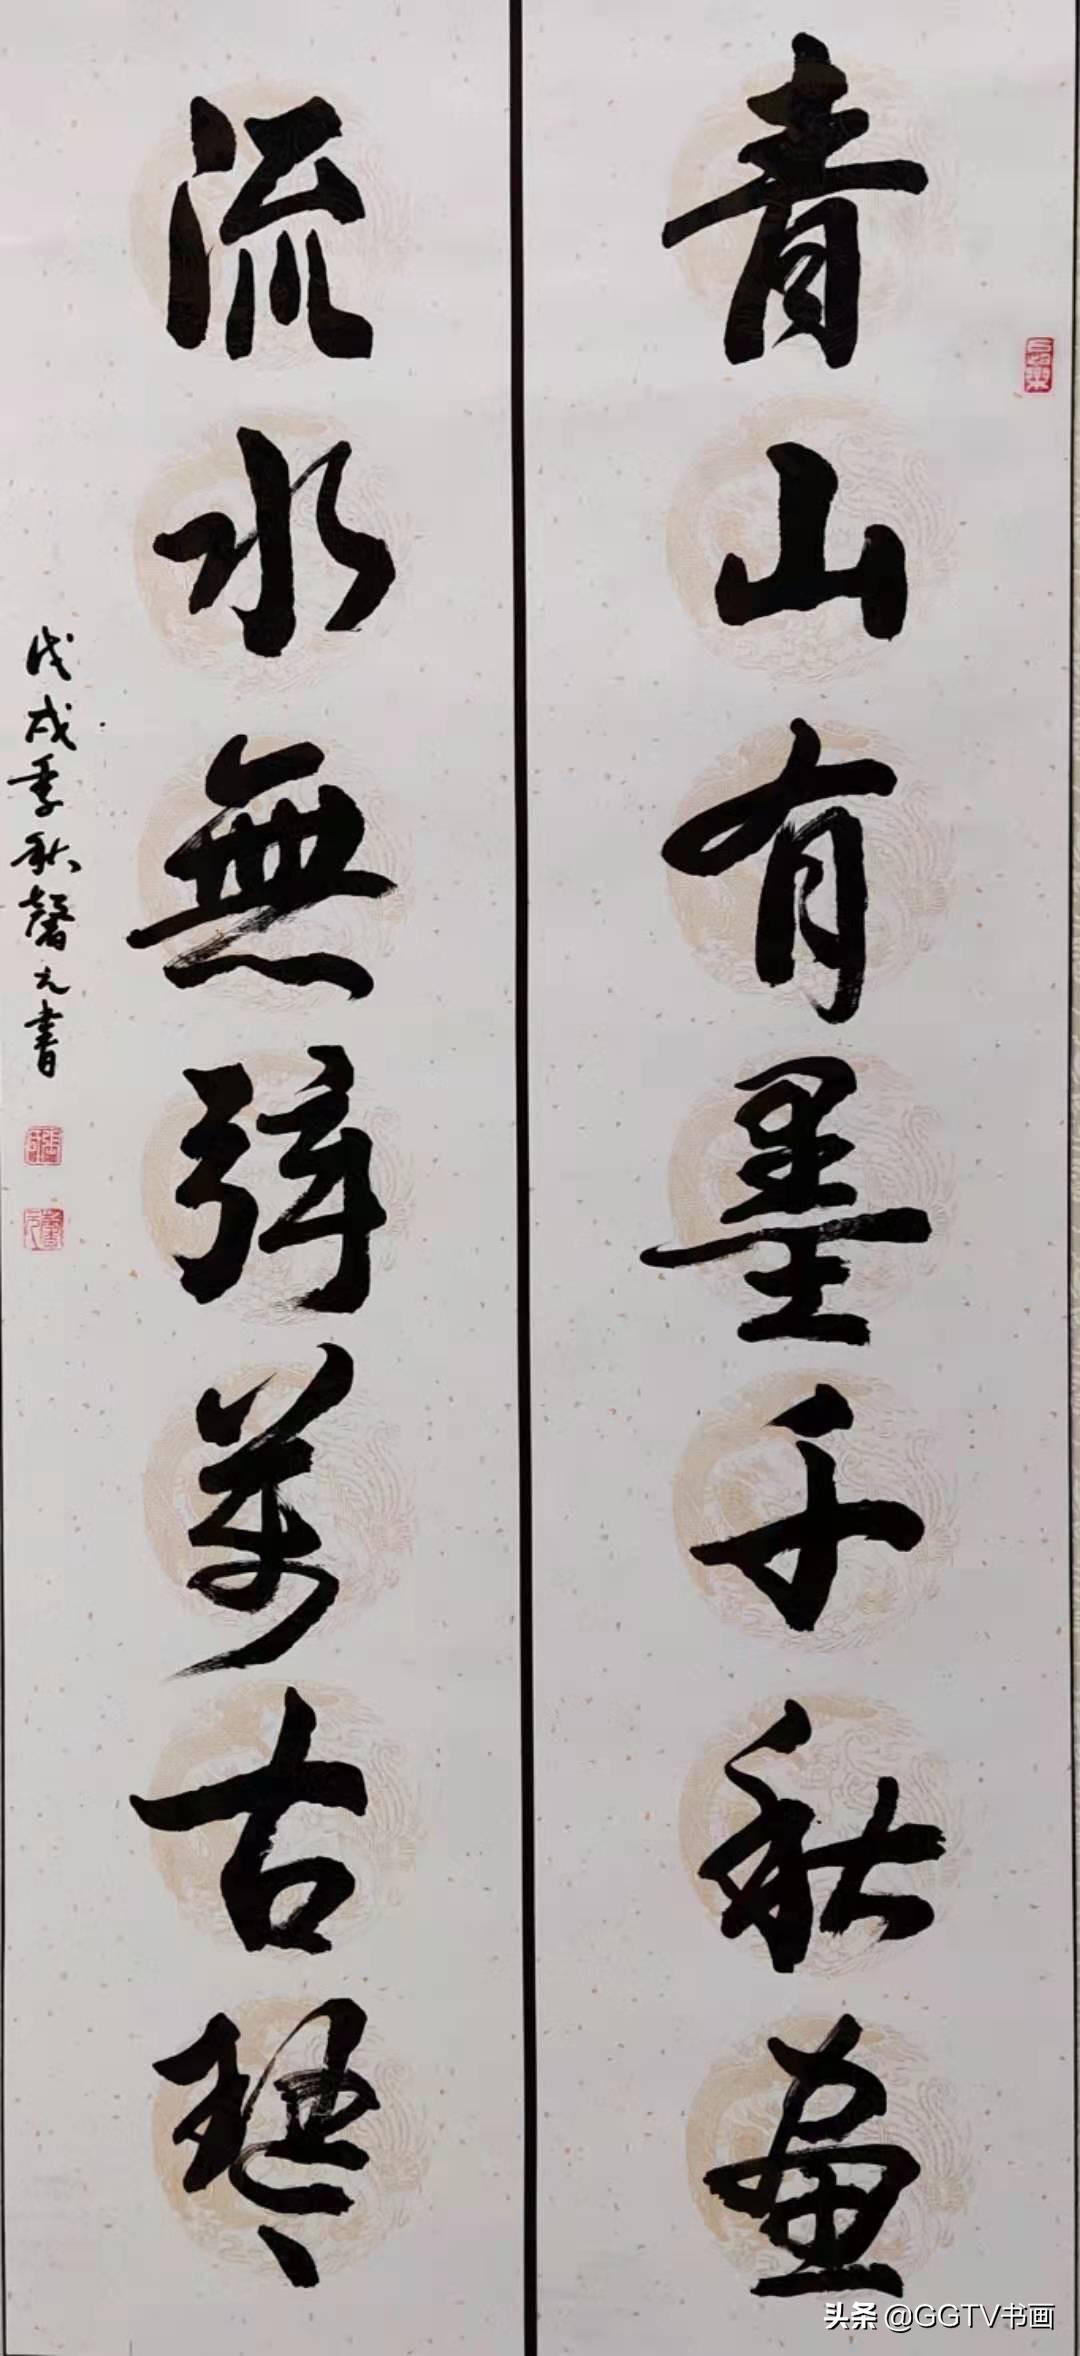 青山有墨千秋画
流水無弦萬古琴
戊戌季秋馨元書
头条 @GGTV书画